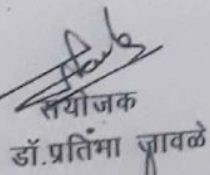 सयोजक
डॉ.प्रतिंभा जावळे